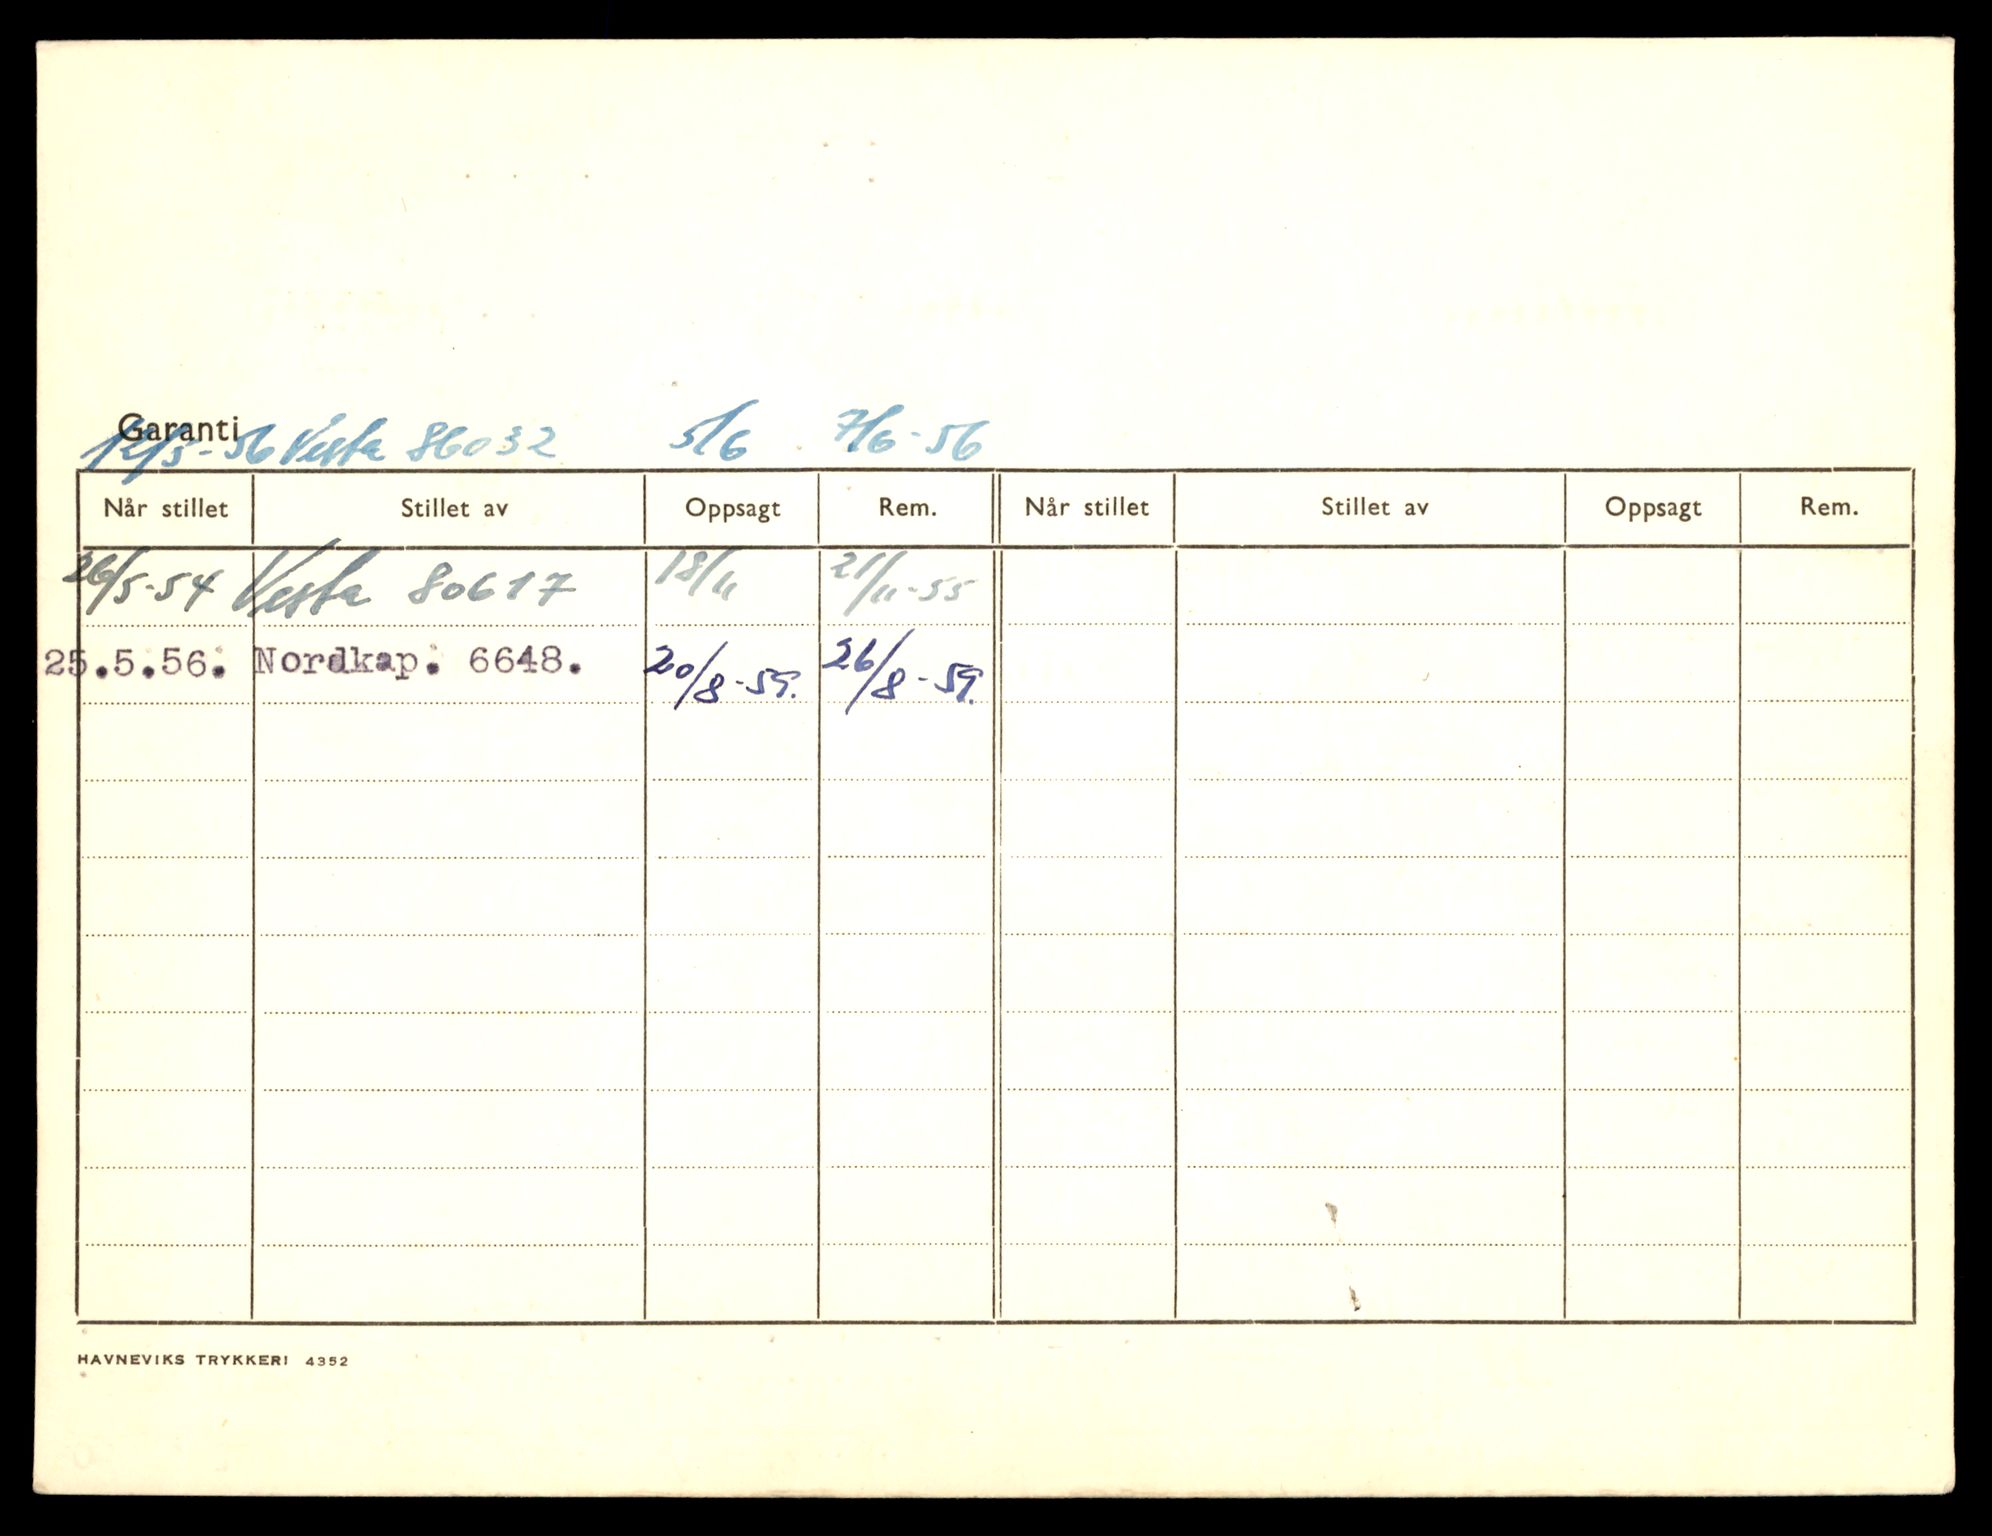 Garanti
12/5-56 Vesta 86032 5/6 7/6-56
Når stillet Stillet av Oppsagt Rem. Når stillet Stillet av Oppsagt Rem.
26/5-54 Vesta 80617 18/11 21/11-55
25.5.56. Nordkap. 6648. 20/8-59. 26/8-59.
HAVNEVIKS TRYKKERI 4352